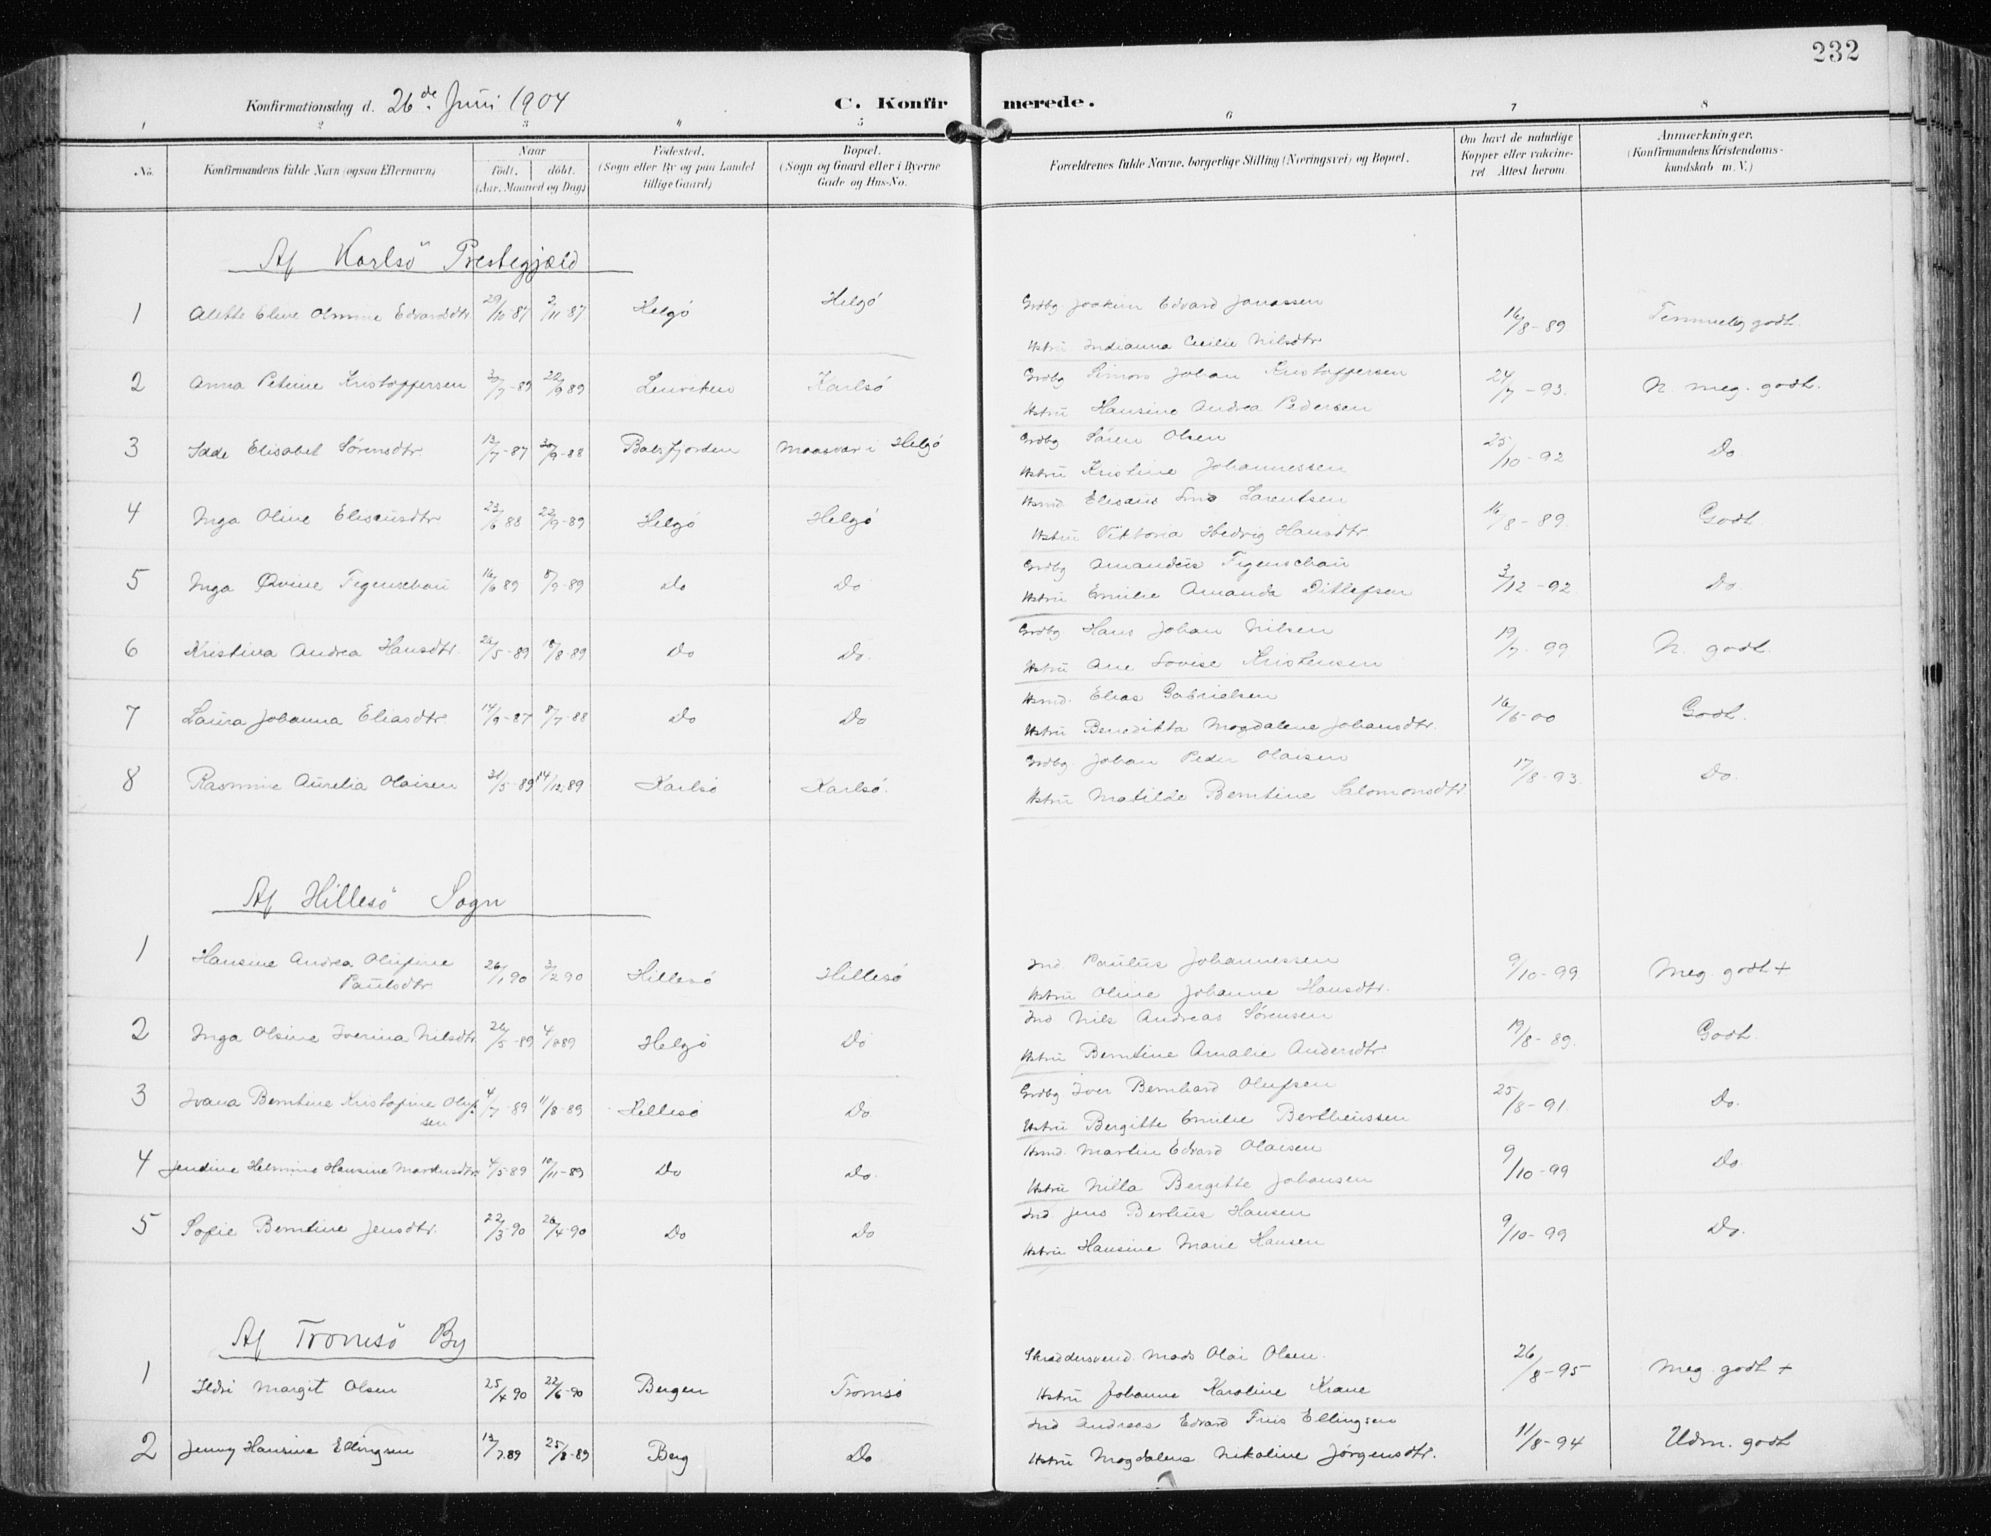 232
Konfirmationsdag d. 26de Juni 1904
C. Konfirmerede.
1 2 3 4 5 6 7 8
No. Konfirmandens fulde Navn (ogsaa Efternavn) Naar født. døbt. (Aar, Maaned og Dag) Fødested. (Sogn eller By og paa Landet tillige Gaard) Bopæl. (Sogn og Gaard eller i Byerne Gade og Hus-No. Forældrenes fulde Navne, borgerlige Stilling (Næringsvei) og Bopæl. Om havt de naturlige Kopper eller vakcineret Attest herom Anmærkninger. (Konfirmandens Kristendomskundskab m. V.)
Af Karlsö Prestegjæld
1 Alette Eline Olmine Edvarddtr. 29/10-87 2/11-87 Helgö Helgö Grdbg Joakim Edvard Jonassen
Hstru Indianna Cecilie Nilsdtr 16/8-89 Temmelig godt.
2 Anna Petrine Kristoffersen 30/7-89 29/9 89 Lenviken Karlsö Grdbg Simon Johan Kristoffersen
Hstru Hansine Andrea Pedersen 24/7-93. N. meg. godt.
3 Elisabet Sörensdtr. 13/7-87 30/9-88 Balsfjorden Maasvær i Helgö Grdbg Sören Olsen
Hstru Kristine Johannessen 25/10-92 Do
4 Inga Oline Elisæusdtr 23/6 88 22/9-89 Helgö Helgö Elisæus Larentsen
Hstru Viktoria Hedvig Hansdtr 16/8-89. Godt
5 Inga Øvine Figenschau 16/6 89 8/9-89 Do Do Grdbg Amandus Figenschau
Hstru Emilie Amanda Ditlefsen 3/12-92 Do
6 Kristina Andrea Hansdtr. 23/5-89 18/8-89 Do Do. Grdbg Hans Johan Nilsen
Hstru Ane Lovise Kristensen 19/7-99 N. godt.
7 Laura Johanna Eliasdtr. 14/9-87 8/7-88 Do Do Elias Gabrielsen
Hstru Benedikta Magdalene Johansdtr. 16/6-00 Godt.
8 Rasmine Aurelia Olaisen 31/5-89 14/12 89 Karlsö Karlsö. Grdbg Johan Peder Olaisen
Hstru Matilde Berntine Salomonsdtr 17/8-93. Do.
Af Hillesö Sogn
1 Hansine Andrea Olufine
Paulsdtr 26/1 90 3/2 90 Hillesö Hillesö Ind. Paulus Johannessen
Hstru Oline Johanne Hansdtr. 9/10-99 Meg. godt +
2 Inga Olsine Iverina Nilsdtr. 26/5-89 4/8 89 Helgö Do Ind Nils Andreas Sörensen
Hstru Berntine Amalie Andersdtr 19/8-89. Godt.
3 Ivana Berntine Kristofine Oluf-
sen 4/7-89 11/8-89 Hillesö Do Grdbg Iver Bernhard Olufsen
Hstru Bergitte Emilie Bertheussen 25/8-91. Do.
4 Jendine Helmine Hansine Martinsdtr. 4/5 89 10/11-89 Do Do. Martin Edvard Olaisen
Hstru Nilla Bergitte Johansen 9/10-99 Do
5 Sofie Berntine Jensdtr. 22/3-90 26/4-90 Do Do Ind Jens Berhus Hansen
Hstru Hansine Marie Hansen 9/10-99 Do.
Af Tromsö By
1 Margit Olsen 25/4 90 22/6-90 Bergen Tromsö Skræddersvend. Mads Olai Olsen.
Hstru Johanne Karoline Krane 26/8-95 Meg. godt +
2 Jenny Hansine Ellingsen 13/7.89 25/8-89 Berg Do Ind Andreas Edvard Friis Ellingsen
Hstru Magdalena Nikoline Jörgensdtr. 11/8-94 Udm. godt